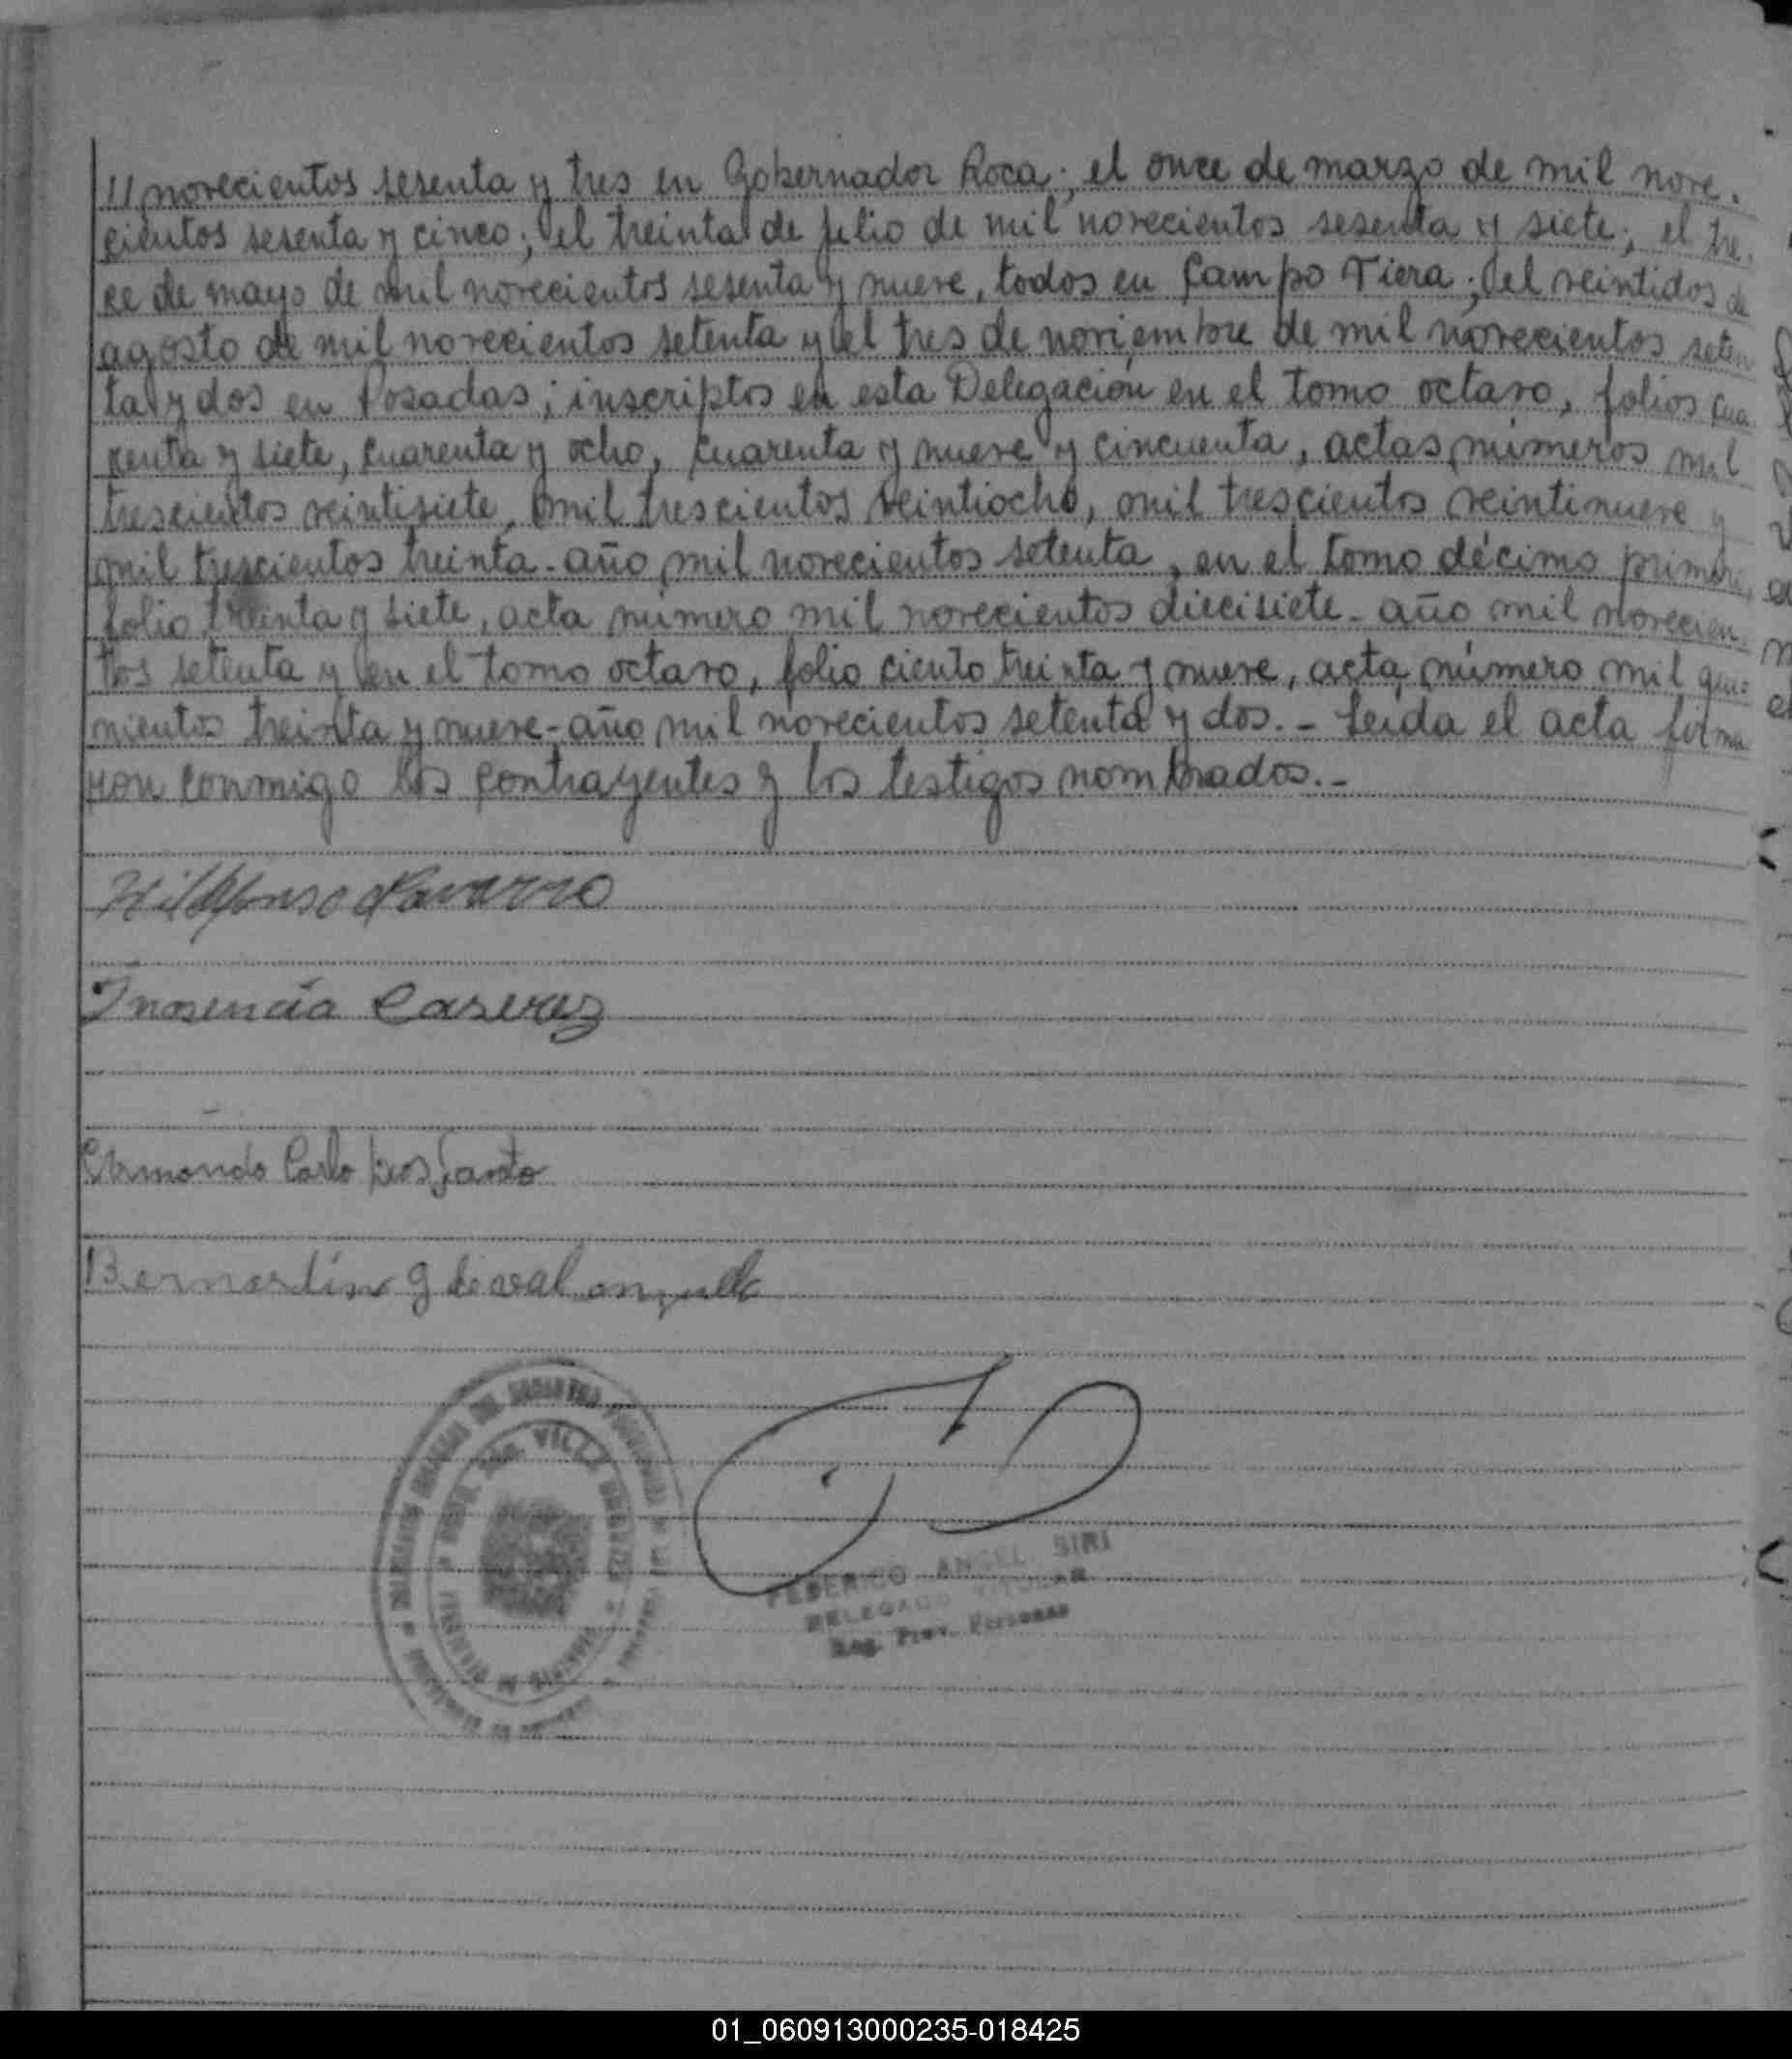 // novecientos sesenta y tres en Gobernador Roca; el once de marzo de mil nove-
cientos sesenta y cinco; el treinta de julio de mil novecientos sesenta y siete; el tre-
ce de mayo de mil novecientos sesenta y nueve, todos en Campo Viera; el veintidos de
agosto de mil novecientos setenta y el tres de noviembre de mil novecientos seten
ta y dos en Posadas; inscriptos en esta Delegación en el tomo octavo, folios cua-
renta y siete, cuarenta y ocho, cuarenta y nueve y cincuenta, actas números mil
trescientos veintisiete, mil trescientos veintiocho, mil trescientos veintinueve y
mil trescientos treinta - año mil novecientos setenta, en el tomo décimo primero,
folio treinta y siete, acta número mil novecientos diecisiete - año mil novecien-
tos setenta y en el tomo octavo, folio ciento treinta y nueve, acta número mil qui-
nientos treinta y nueve - año mil novecientos setenta y dos. - Leída el acta firma-
ron conmigo los contrayentes y los testigos nombrados. -
Hildfonso Navarro
Inosencia Caseres
Armando Carlo Dos Santo
Bernardina G de
VILLA
FEDERICO ANGEL SIRI
DELEGADO TITULAR
Reg. Prov. Personas
01_060913000235-018425